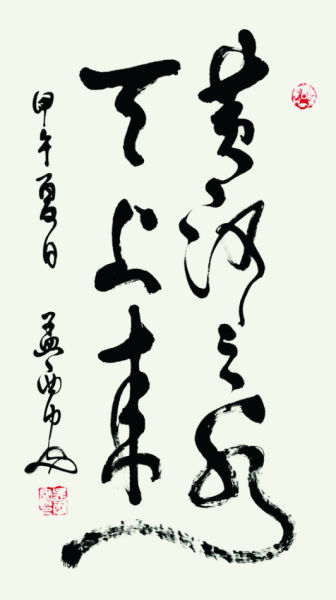 黄河之水
天上来
甲午夏日 孟